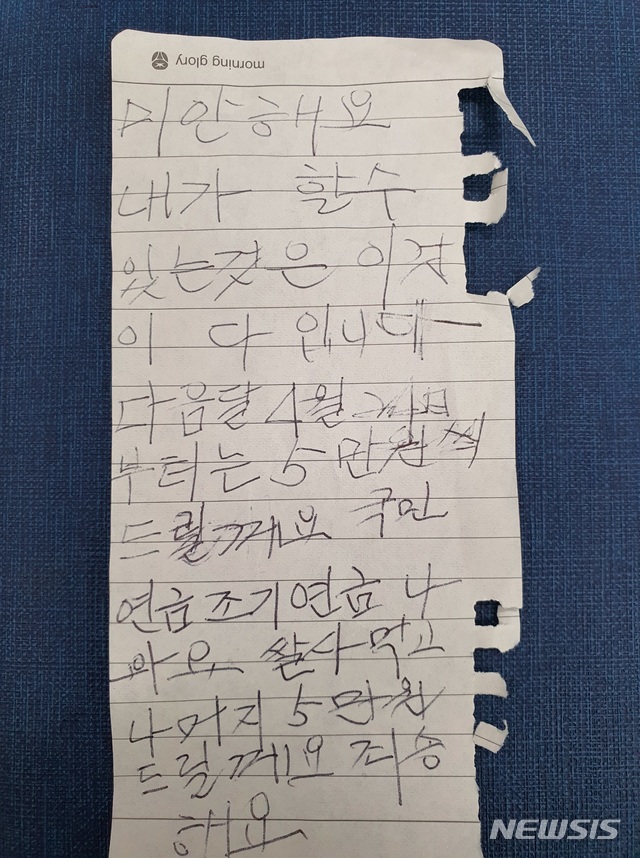 morning glory
미안해요
내가 할수
있는것은 이것
이 다 입니다
다음달 4월
부터는 5만원씩
드릴께요 국민
연금조기연금 나
와요 쌀사먹고
나머지 5만원
드릴께요 죄송
해요
NEWSIS